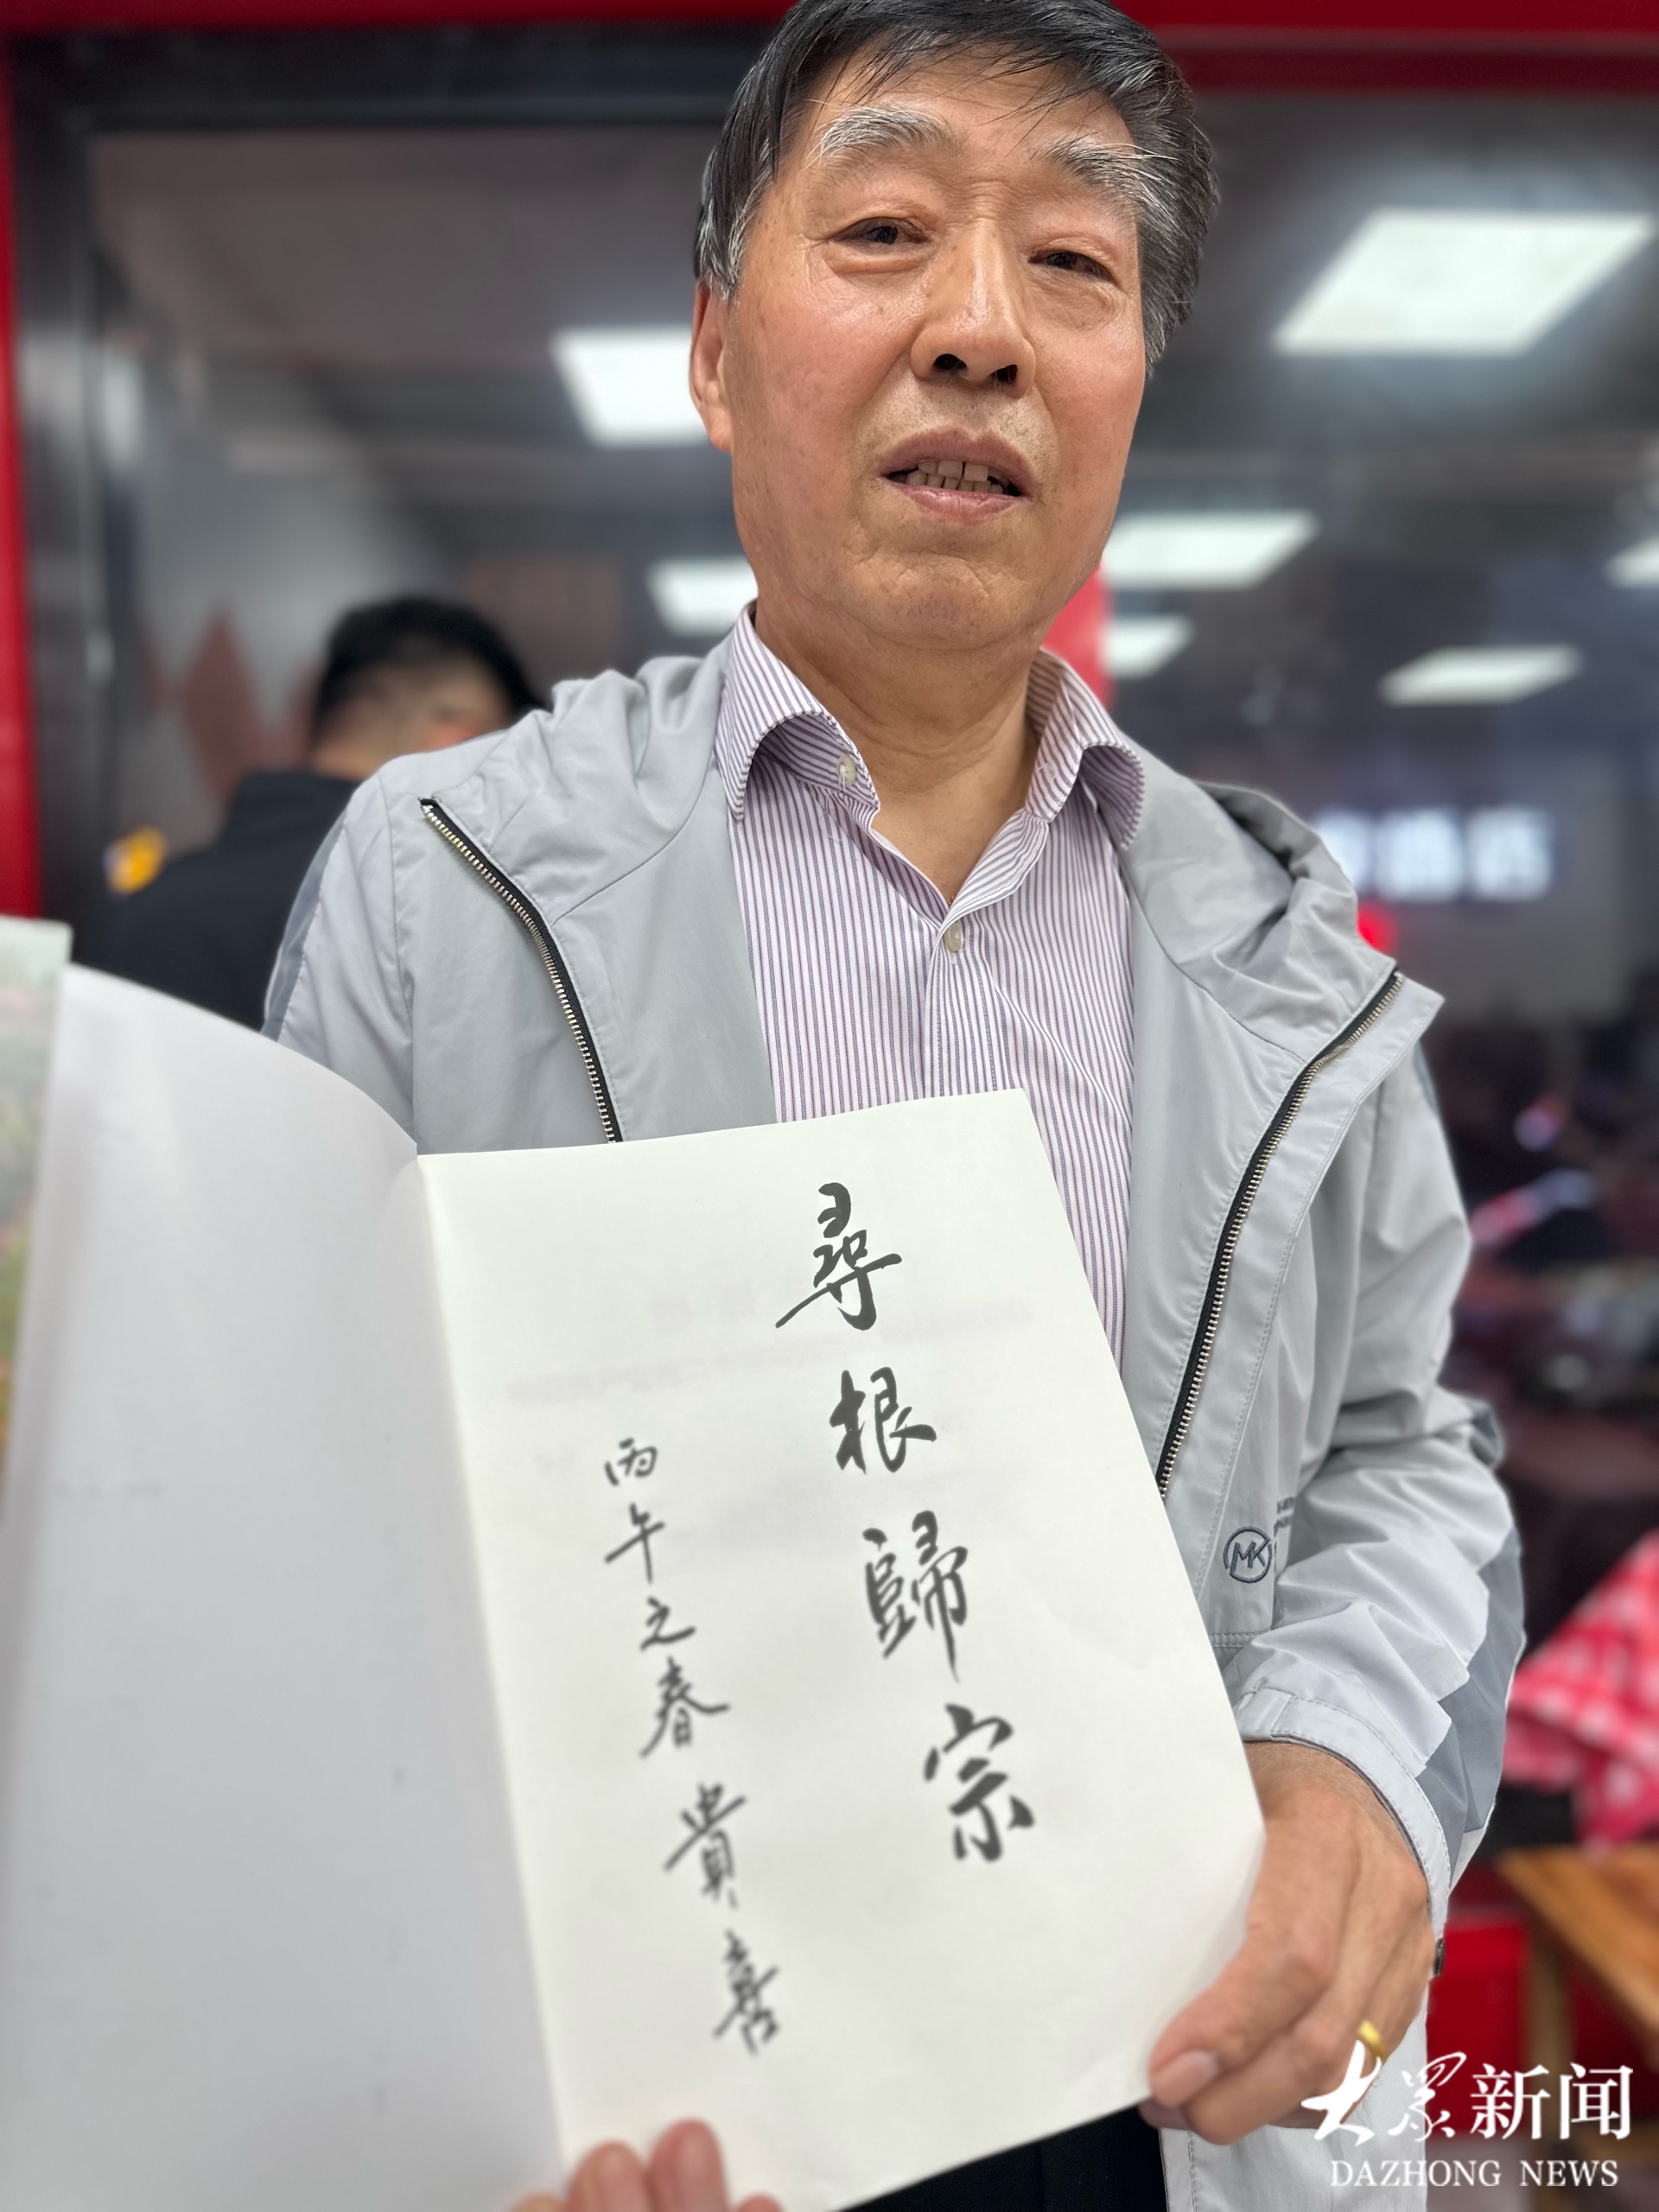 尋根歸宗
丙午之春 貴喜
MK
大眾新闻
DAZHONG NEWS